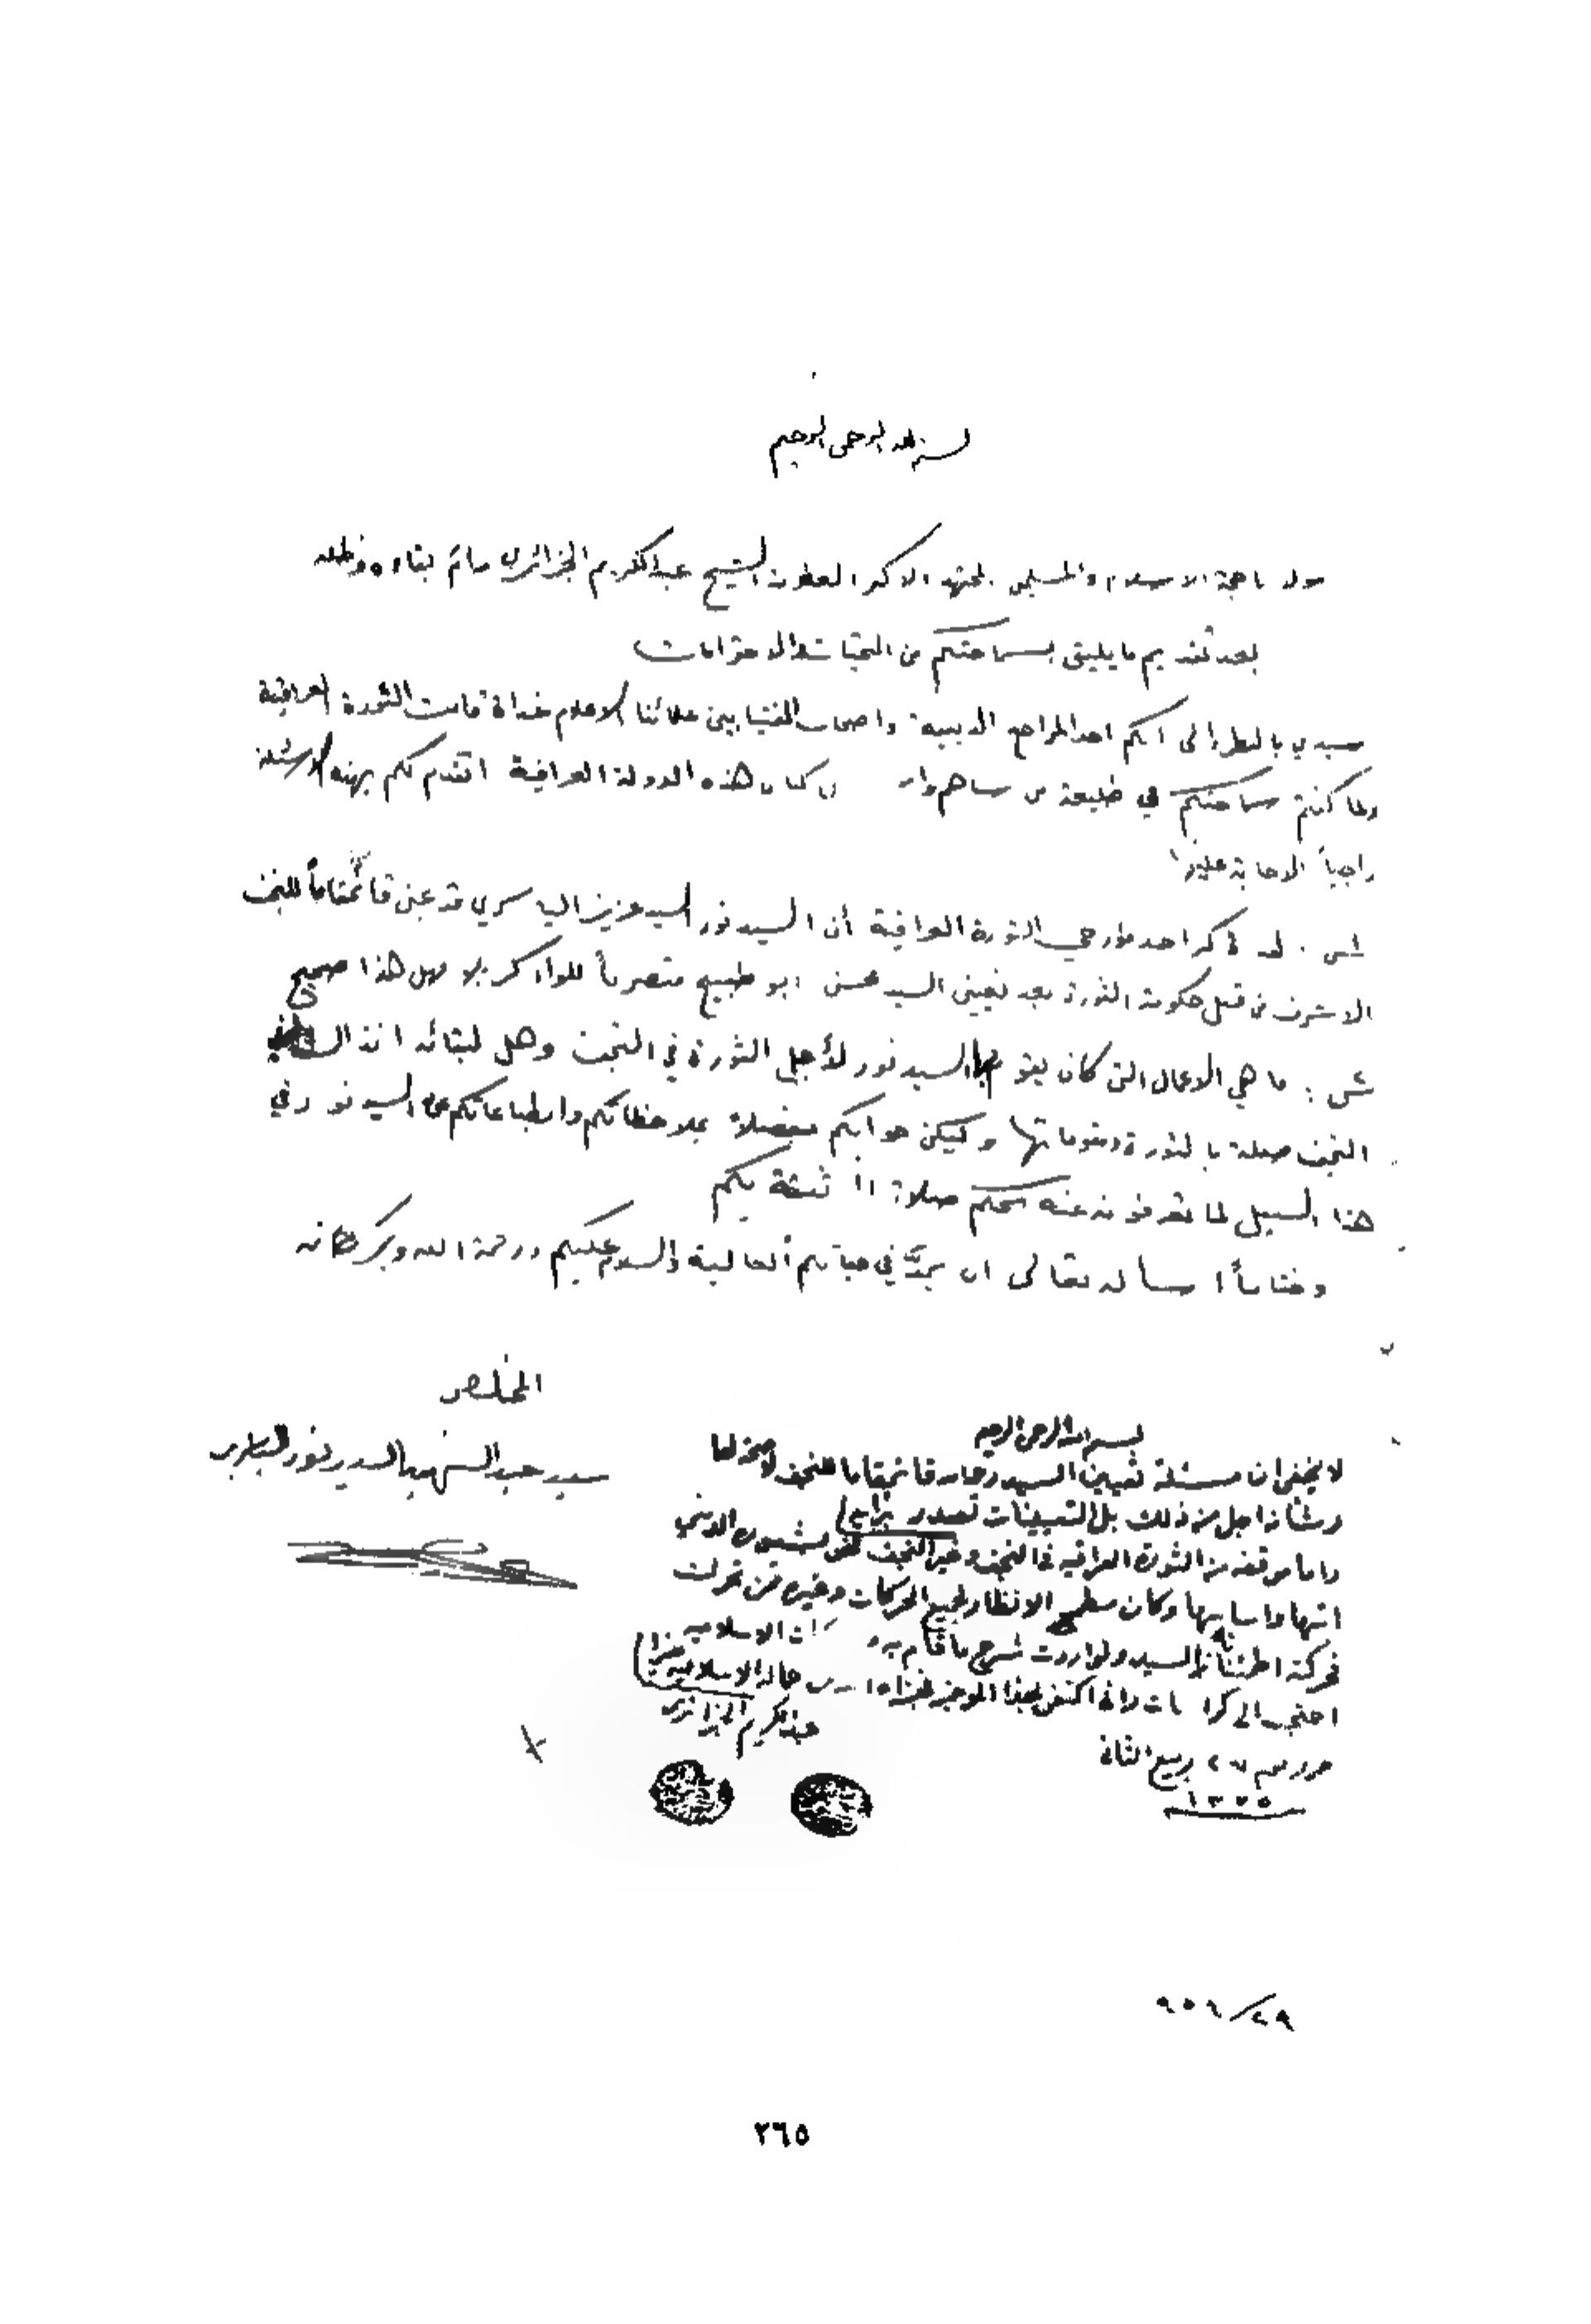 بسم الله الرحمن الرحيم
مولانا حجة الاسلام والمسلمين المجتهد الاكبر الشيخ عبدالكريم الجزائري دام بقاءه
بعد تقديم ما يليق بسماحتكم من التحيات والاحترامات
سيدي بالنظر الى انكم احد المراجع الدينية واصحاب الفتيا بين علمائنا الاعلام غداة قامت الثورة العراقية
ولما كنتم سماحتكم في طليعة من ساهم هذه الدولة العراقية اتقدم لكم بهذه الاسئلة
راجياً الاجابة عليها
س : لقد ذكر احد مؤرخي الثورة العراقية أن السيد نور السيد عزيز الياسري قد عين قائمقاماً للنجف
الاشرف من قبل حكومة الثورة بعد تعيين السيد محسن ابو طبيخ متصرفاً للواء كربلا فهل هذا صحيح
س : ما هي الاعمال التي كان يقوم بها السيد نور لأجل الثورة في النجف وهل لبقائه انذاك في
النجف صلة بالثورة ومقوماتها وليكن جوابكم مفصلاً بملاحظاتكم وانطباعاتكم عن السيد نور في
هذا السبيل لما تعرفونه عنه
وختاماً اسأله تعالى ان يمد في حياتكم الغالية والسلام عليكم ورحمة الله وبركاته
المخلص
سيد عبد الشهيد السيد نور الياسري
بسم الله الرحمن الرحيم
لا يخفى ان مسئلة تعيين السيد قائمقاما للنجف لا صحة لها
وشأنه اجل من ذلك بل التعيينات تصدر برأيه
واما موقفه من الثورة العراقية في النجف وغير النجف
وكان مطمح الانظار لجميع الحركات
السيد ولو اردت شرح ما قام به الاسلامية
احتجت الى واني اكتفي بهذا الموجز فجزاه الله عن الاسلامية خيرا
عبدالكريم الجزائري
حرر يوم ٢٧ ربيع الثاني
١٣٧٥
٢٩/ ٩٥٦
٢٦٥